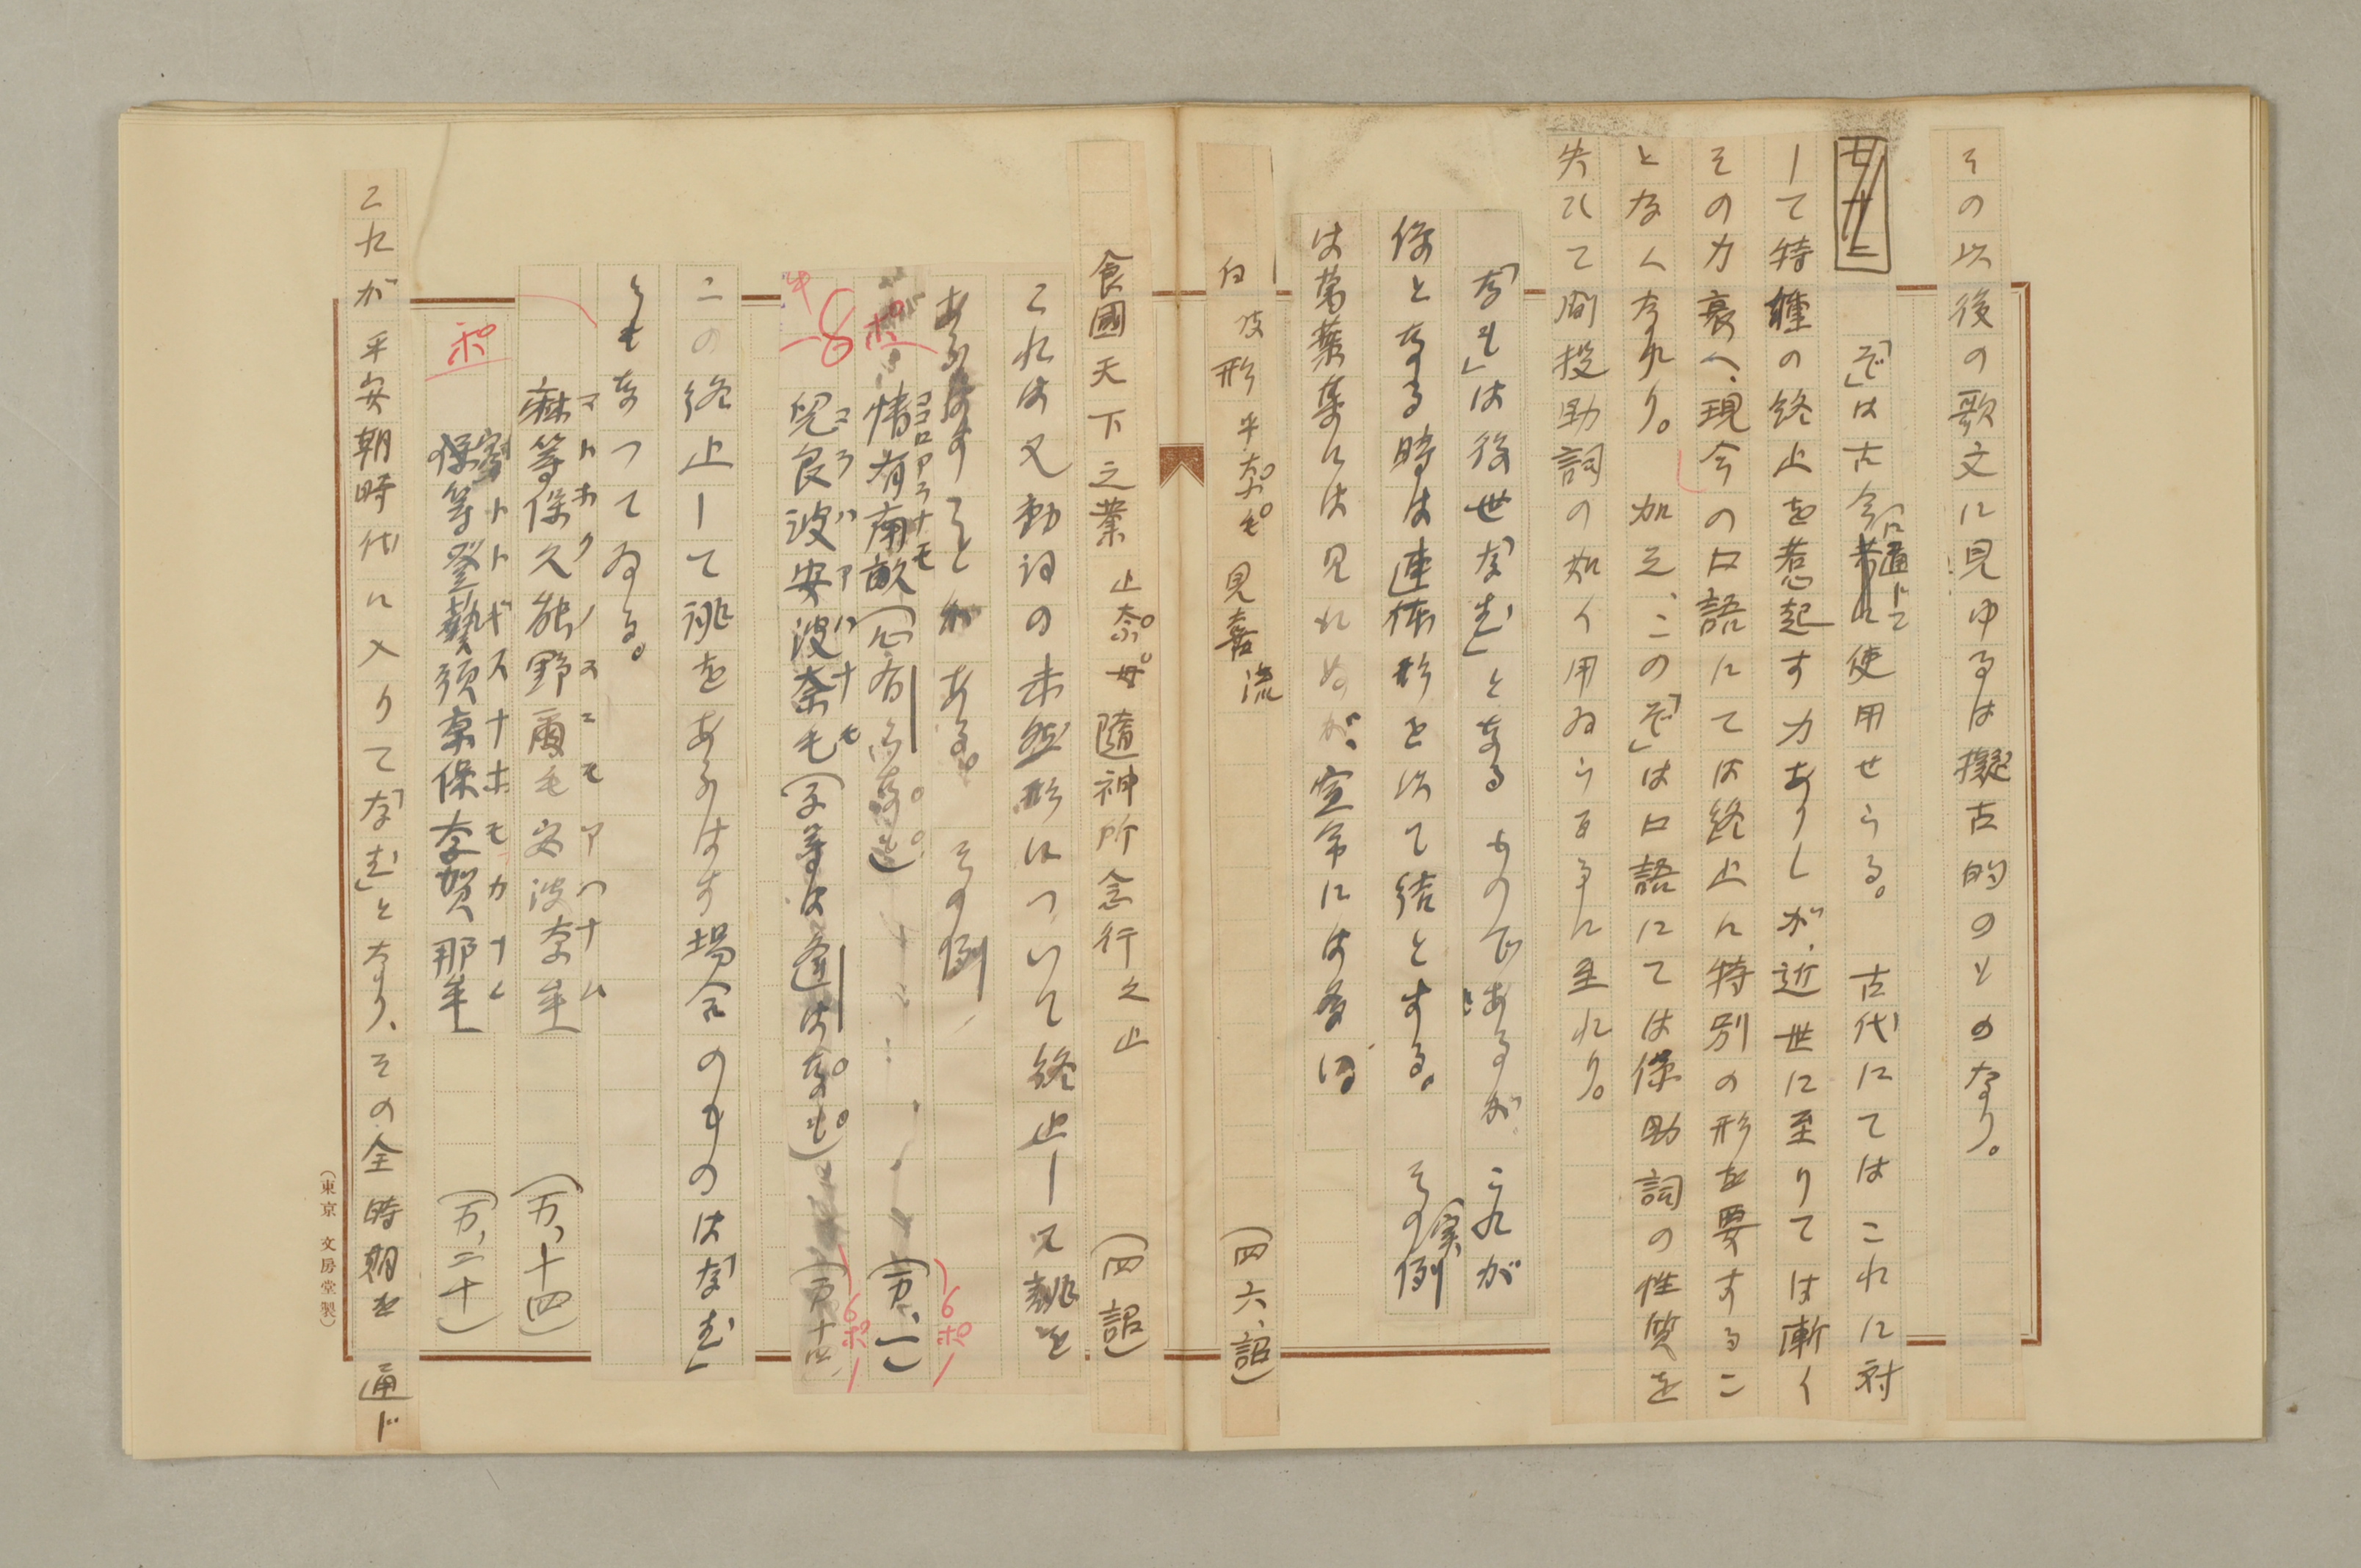 その以後の歌文に見ゆるは擬古的のものなり。
「ぞ」は古今に通じて使用せらる。古代にてはこれに対
して特種の終止を惹起す力ありしが、近世に至りては漸く
その力衰へ、現今の口語にては終止に特別の形を要するこ
となくなれり。加之、この「ぞ」は口語にては係助詞の性質を
失ひて間投助詞の如く用ゐらるゝに至れり。
「なも」は後世「なむ」となるものであるが、これが
係となる時は連体形を以て結とする。その実例
は萬葉集には見れぬが、宣命には多い
白岐形乎奈毛見喜流（四六、詔）
食國天下之業止奈母隨神所念行之止（四詔）
これは又動詞の未然形について終止して誂を
あらはすことがある。その例
情有南畝（心有らなも）（万、一）
ココロアラナモ
兒良波安波奈毛（子等は逢はなも）（万十四）
コラハアハナモ
この終止して誂をあらはす場合のものは「なむ」
ともなつてゐる。
麻等保久能野爾毛安波奈牟（万、十四）
マトホクノヌニモアハナム
保等登藝須奈保奈賀那牟（万、二十）
ホトトギスナホモナカナム
これが平安朝時代に入りて「なむ」となり、その全時期を通じ
ポ
8ポ
6ポ
6ポ
（東京 文房堂製）